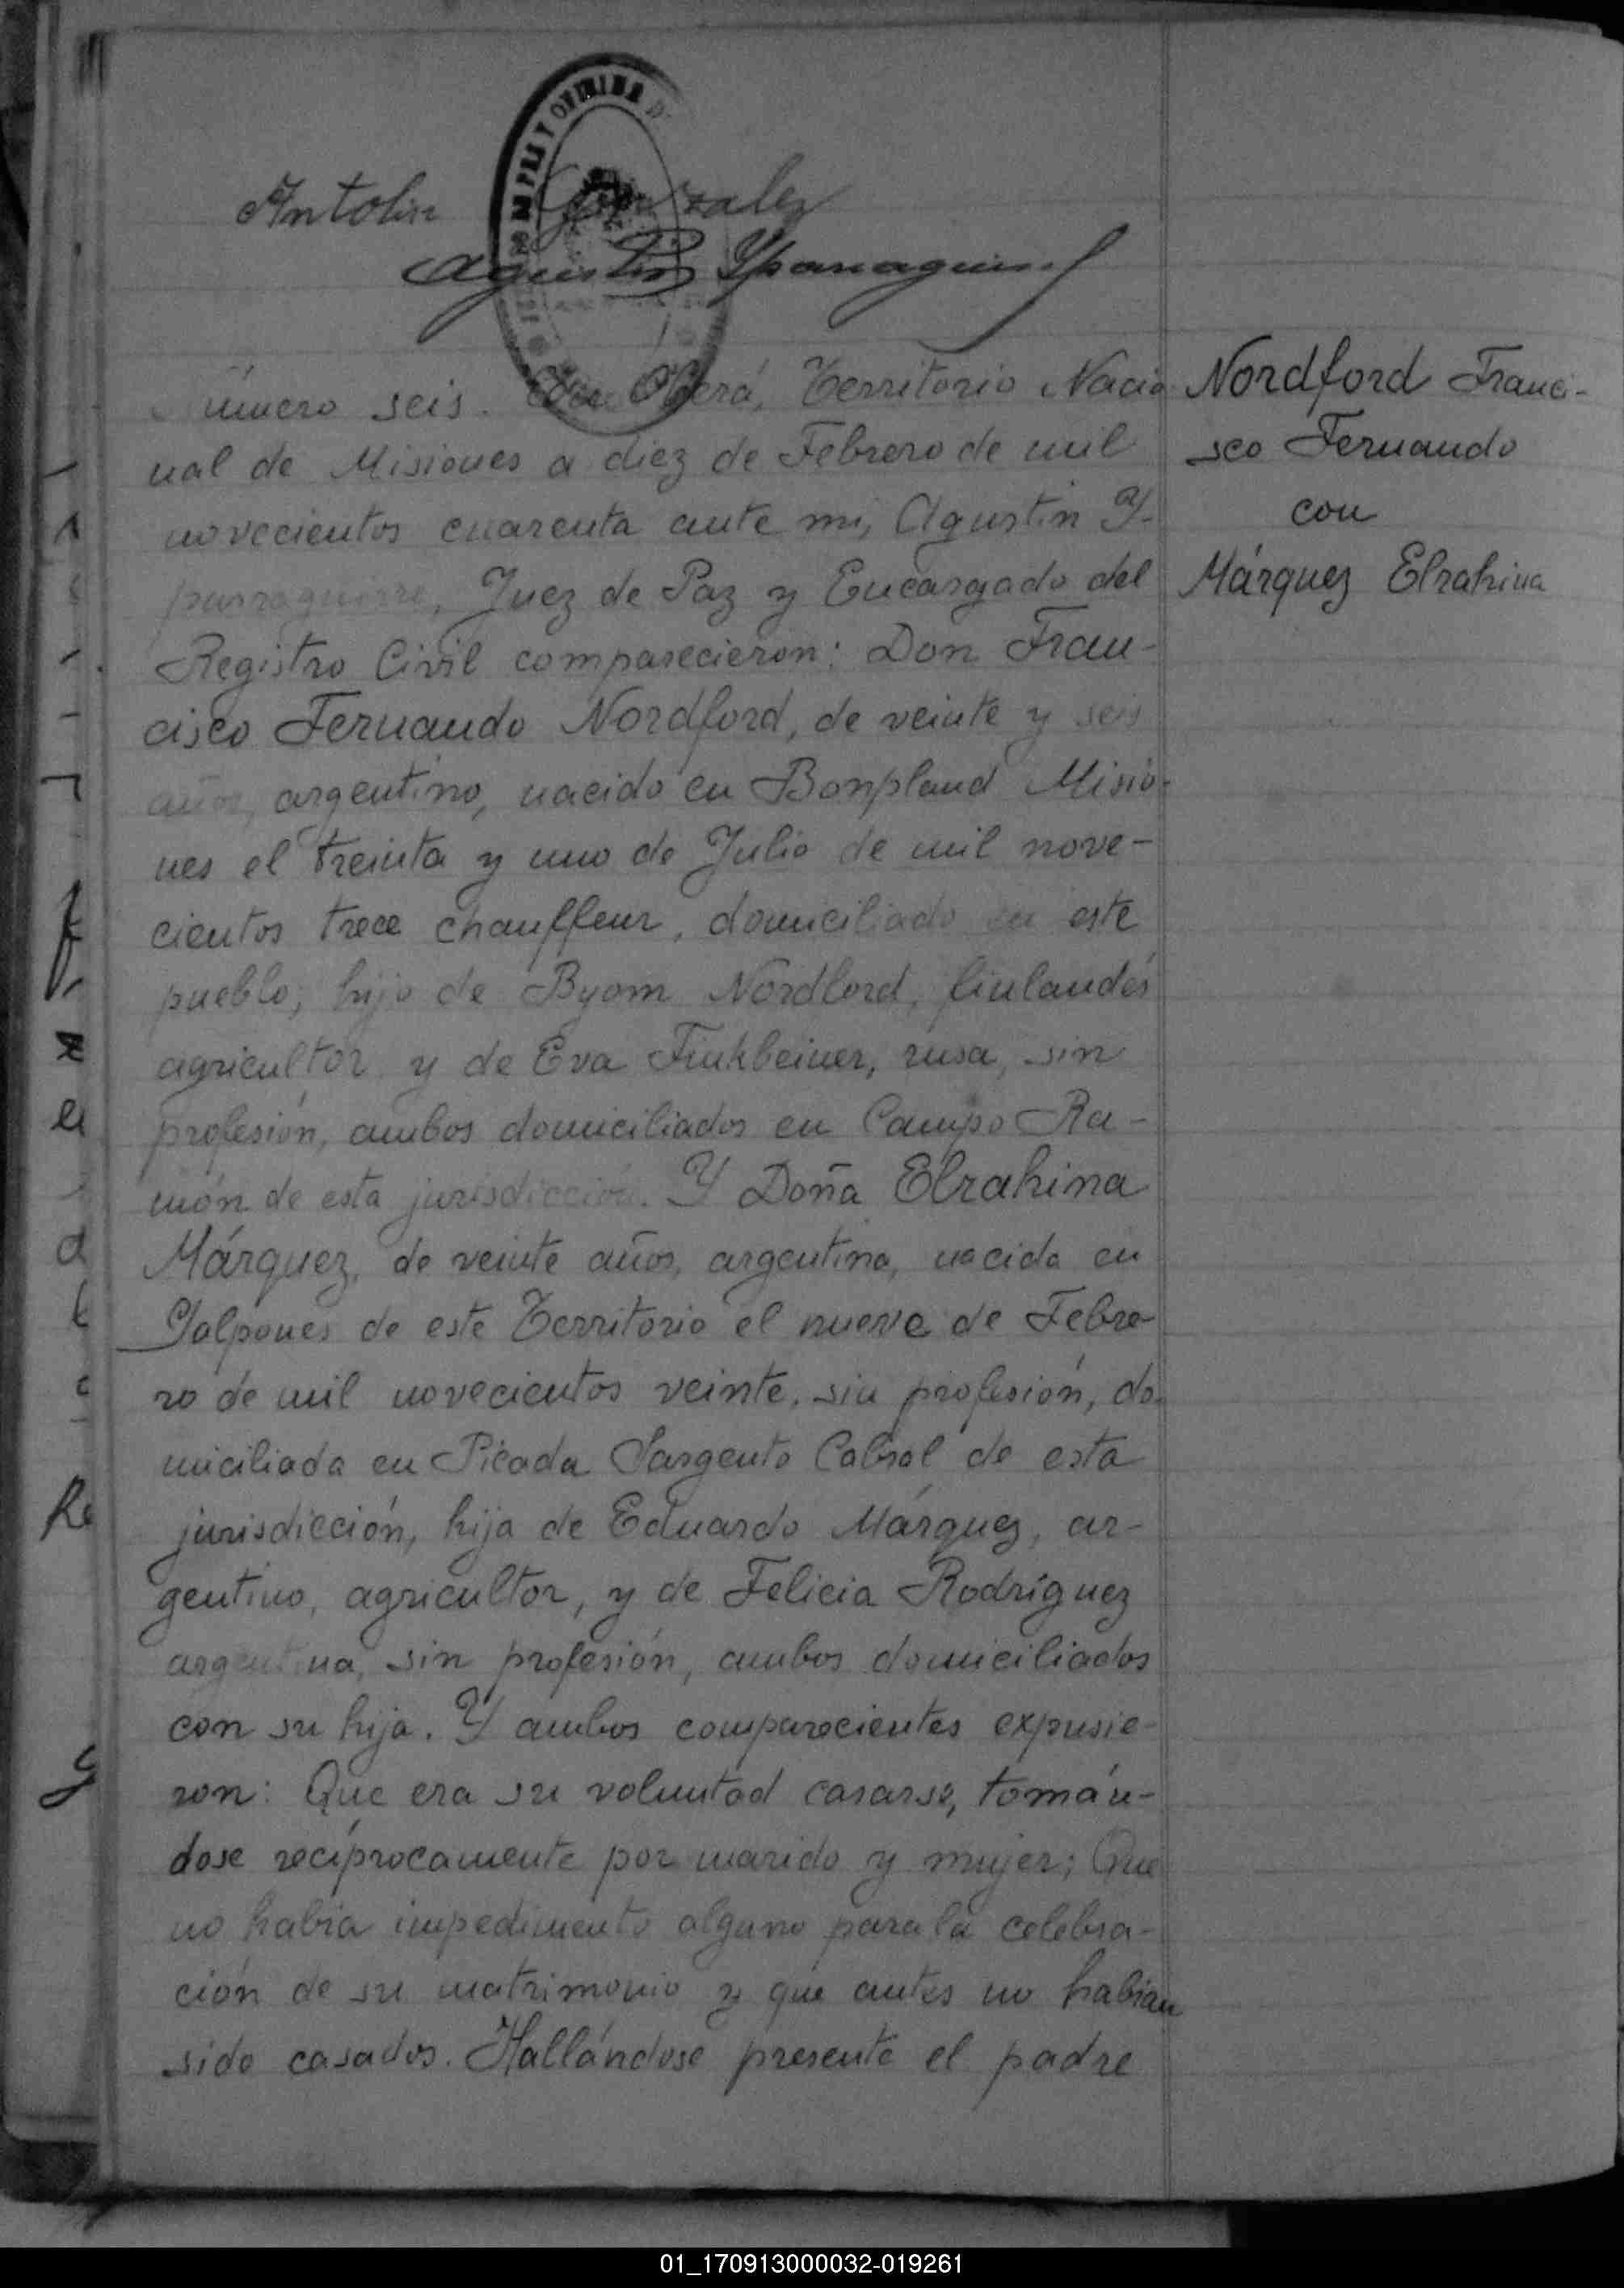 Antolin Gonzalez
Agustin Yparraguirre
Número seis. En Oberá, Territorio Nacio
nal de Misiones a diez de Febrero de mil
novecientos cuarenta ante mi, Agustin Y-
parraguirre, Juez de Paz y Encargado del
Registro Civil comparecieron: Don Fran-
cisco Fernando Nordford, de veinte y seis
años, argentino, nacido en Bonpland Misio-
nes el treinta y uno de Julio de mil nove-
cientos trece chauffeur, domiciliado en este
pueblo, hijo de Byom Nordford, finlandés
agricultor y de Eva Finkbeiner, rusa, sin
profesión, ambos domiciliados en Campo Ra-
món de esta jurisdicción. Y Doña Elrahina
Márquez, de veinte años, argentina, nacida en
Galpones de este Territorio el nueve de Febre-
ro de mil novecientos veinte, sin profesión, do-
miciliada en Picada Sargento Cabral de esta
jurisdicción, hija de Eduardo Márquez, ar-
gentino, agricultor, y de Felicia Rodríguez
argentina, sin profesión, ambos domiciliados
con su hija. Y ambos comparecientes expusie-
ron: Que era su voluntad casarse, tomán-
dose recíprocamente por marido y mujer; Que
no habia impedimento alguno para la celebra-
ción de su matrimonio y que antes no habian
sido casados. Hallándose presente el padre
Nordford Franci-
sco Fernando
con
Márquez Elrahina
01_170913000032-019261